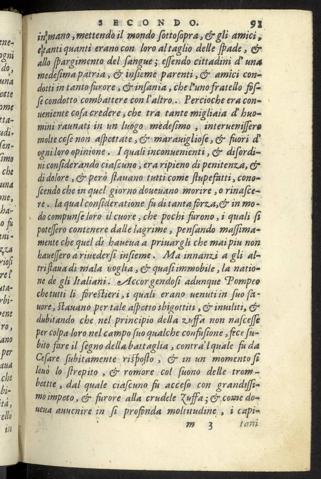 SECONDO. 91
in mano, mettendo il mondo sottosopra, & gli amici,
& santi quanti erano con loro al taglio delle spade, &
allo spargimento del sangue; essendo cittadini d'una
medesima patria, & insieme parenti, & amici con-
dotti in tanto furore, & insania, che l'uno fratello fos-
se condotto combattere con l'altro. Percioche era con-
ueniente cosa credere, che tra tante migliaia d'huo-
mini raunati in un luogo medesimo, interuenissero
molte cose non aspettate, & marauigliose, & fuori d'
ogni loro opinione. I quali inconuenienti, & disordi-
ni considerando ciascuno, era ripieno di penitenza, &
di dolore, & però stauano tutti come stupefatti, cono-
scendo che in quel giorno doueuano morire, o rinasce-
re. la qual consideratione fu di tanta forza, & in mo-
do compunse loro il cuore, che pochi furono, i quali si
potessero contenere dalle lagrime, pensando massima-
mente che quel dì haueua a priuargli che mai piu non
hauessero a riuedersi insieme. Ma innanzi a gli al-
tri staua di mala uoglia, & quasi immobile, la natio-
ne de gli Italiani. Accorgendosi adunque Pompeo
che tutti li forestieri, i quali erano uenuti in suo fa-
uore, stauano per tale aspetto sbigottiti, & inuiliti, &
dubitando che nel principio della zuffa non nascesse
per colpa loro nel campo suo qualche confusione, fece su-
bito fare il segno della battaglia, contra'l quale fu da
Cesare subitamente risposto, & in un momento si
leuò lo strepito, & romore col suono delle trom-
bette, dal quale ciascuno fu acceso con grandissi-
mo impeto, & furore alla crudele Zuffa; & come do-
ueua auuenire in sì profonda moltitudine, i capi-
m 3 tani